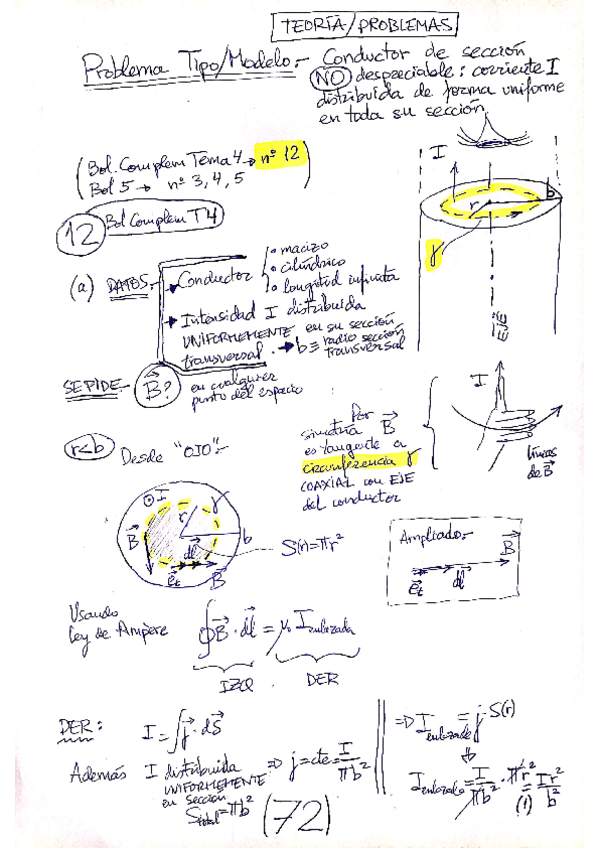 TEORÍA/PROBLEMAS
Problema Tipo/Modelo:- Conductor de sección
NO despreciable: corriente I
distribuida de forma uniforme
en toda su sección
(Bol. Complem Tema 4 → nº 12
Bol 5 → nº 3, 4, 5)
12 Bol Complem T4
I
r
b
γ
EJE
(a) DATOS.- → Conductor
• macizo
• cilíndrico
• longitud infinita
→ Intensidad I distribuida
UNIFORMEMENTE en su sección
transversal. → b ≡ radio sección
transversal
SE PIDE.- B⃗? en cualquier
punto del espacio
r<b Desde "OJO":-
Por
simetría B⃗
es tangente a
circunferencia γ
COAXIAL con EJE
del conductor
I
líneas
de B⃗
⊙ I
r
γ
B⃗
b
dl⃗
e⃗t
B⃗
S(r)=πr²
Ampliado:-
B⃗
e⃗t
dl⃗
Usando
Ley de Ampère ∮B⃗·dl⃗ = μ₀ I enlazada
IZQ. DER
DER: I = ∫j⃗·dS⃗
Además I distribuida
UNIFORMEMENTE
en sección
S total = πb²
⇒ j = cte = I/πb²
⇒ I enlazada = j·S(r)
I enlazada = I/πb² · πr² = (1) Ir²/b²
(72)